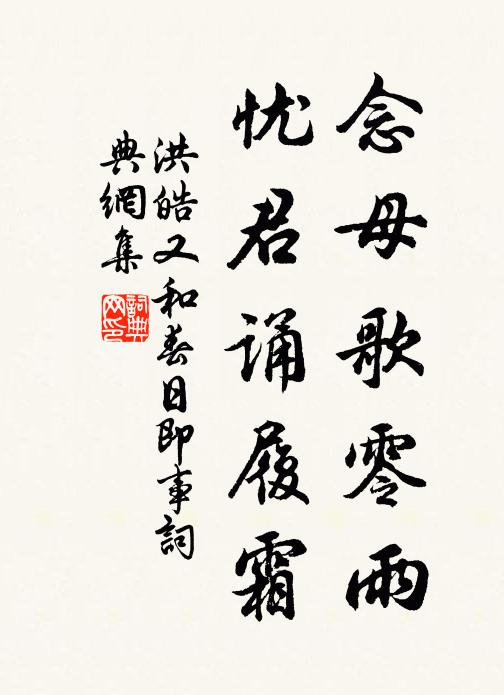 念母歌零雨
忧君诵履霜
洪皓又和春日即事詞
典網集
詞典网印